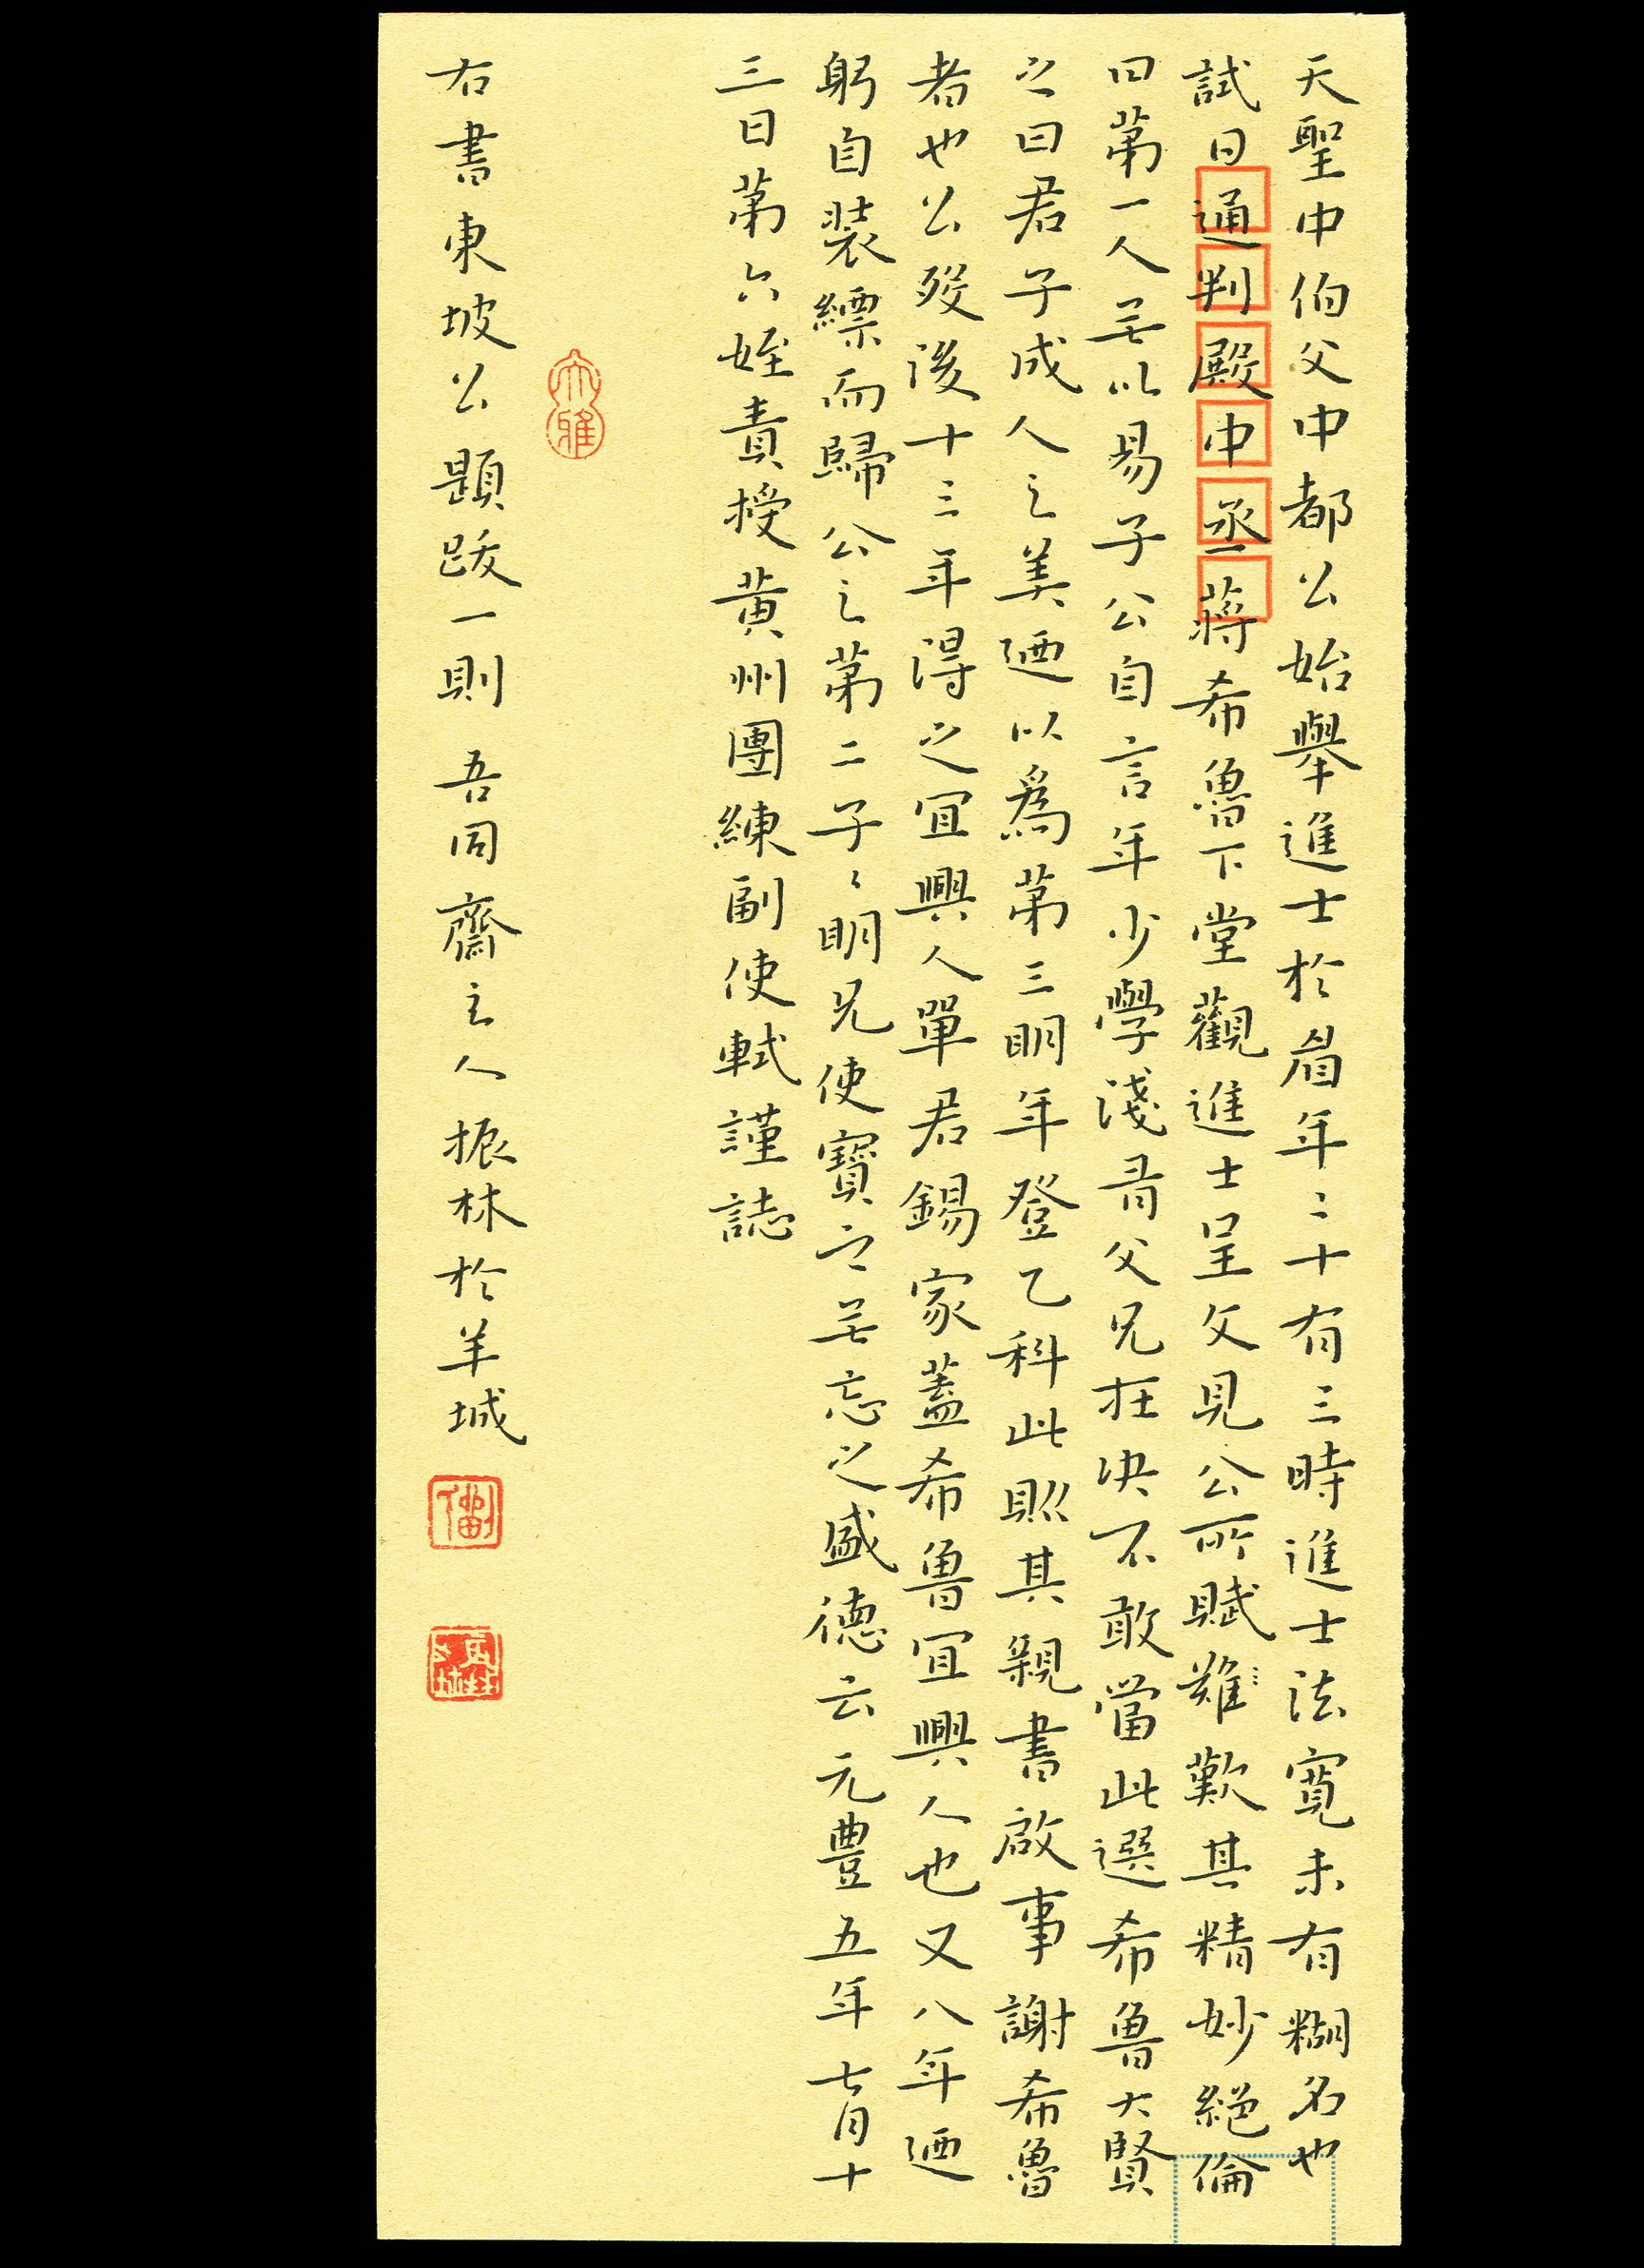 天聖中伯父中都公始舉進士於眉年二十有三時進士法寬未有糊名也
試日通判殿中丞蔣希魯下堂觀進士呈文見公所賦雖歎其精妙絕倫
曰第一人無以易子公自言年少學淺有父兄在决不敢當此選希魯大賢
之曰君子成人之美迺以爲第三明年登乙科此卽其親書啟事謝希魯
者也公殁後十三年得之宜興人單君錫家蓋希魯宜興人也又八年迺
躬自裝縹而歸公之第二子々明兄使寶之無忘之盛德云元豊五年七月十
三日第六姪責授黃州團練副使軾謹誌
大雅
右書東坡公題跋一則 吾同齋主人振林於羊城
劉